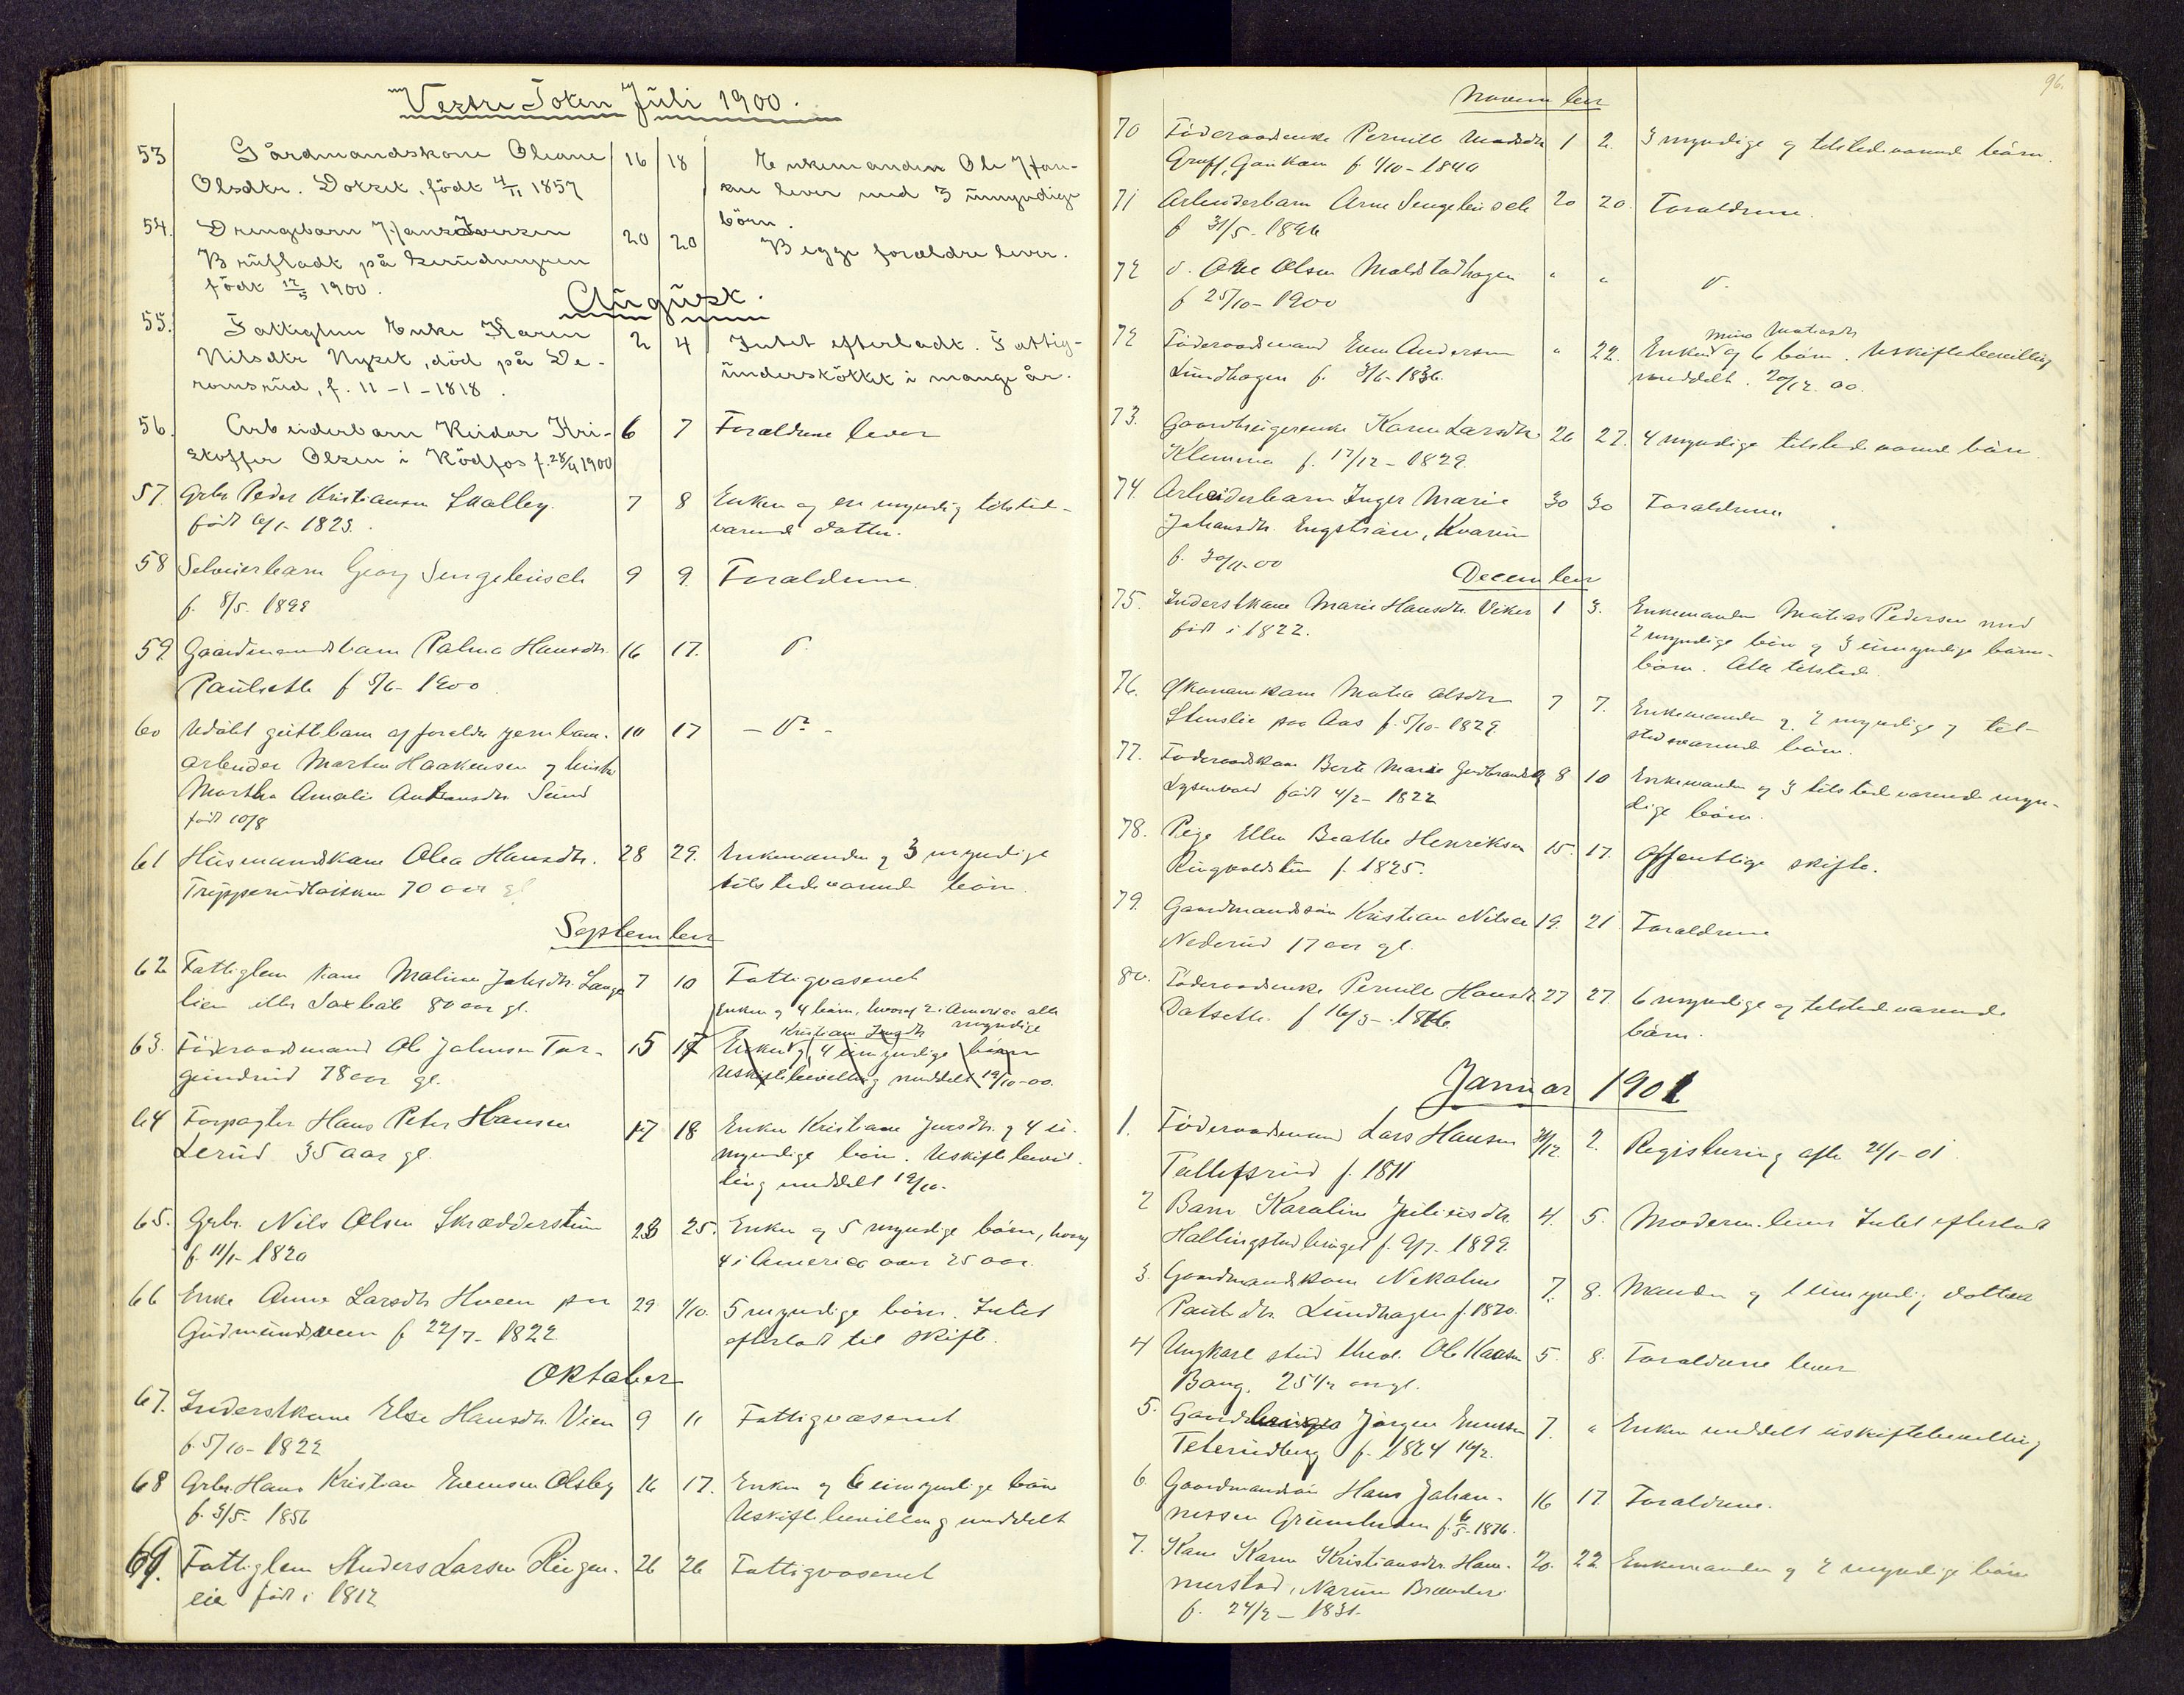 Vestre Toten Juli 1900.
53 Gårdmandskone Oleane 16 18 Enkemanden Ole Han-
Olsdtr. Dotset, født 4/11 1857 sen lever med 3 umyndige
børn.
54. Drengebarn Hans Iversen 20 20 Begge forældre lever.
Brufladt på
født 12/5 1900.
August.
55. Fattiglem Enke Karen 2 4 Intet efterladt. Fattig-
Nilsdtr Nyset, død på De- understøttet i mange år.
romsrud, f. 11-1-1818.
56. Arbeiderbarn Reidar Kri- 6 7 Forældrene lever
stoffer Olsen i Rødfos f. 28/4 1900
57. Gbr. Peder Kristiansen Skolby. 7 8 Enken og en myndig tilsted-
født 6/1- 1823. værende datter.
58 Selveierbarn Georg Sengebusch 9 9. Forældrene
f. 8/5. 1898
59. Gaardmandsbarn Palma Hansdr. 16 17. d.
Paulsette f 5/6- 1900.
60 Udøbt guttebarn af forældre jernban- 10 17 - do -
arbeider Martin Haakensen og hustr
Martha Amalie Sund
født 10/8
61 Husmandskone Olea Hansdtr. 28 29. Enkemanden og 3 myndige
70 aar gl tilstedeværende børn.
September
62 Fattiglem kone Maline Johsdr. Lange 7 10 Fattigvæsenet
lien eller Saxbøl 80 aar gl. Enken og 4 børn, hvoraf 2 i America alle
Kristiane Jensdtr myndige
63. Føderaadsmand Ole Johnsen Tor- 15 17 Enken og 4 umyndige børn
gundrud 78 aar gl. Uskiftebevilling meddelt 19/10-00.
64 Forpagter Hans Peter Hansen 17 18 Enken Kristiane Jensdr. og 4 u-
Lerud 35 aar gl. myndige børn. Uskiftebevil-
ling meddelt 19/10.
65. Gbr. Nils Olsen Skrædderstuen 23 25. Enken og 5 myndige børn, hvoraf
f. 11/1- 1820 4 i America over 25 aar.
66 Enke Anne Larsdtr Hveem paa 29 1/10. 5 myndige børn. Intet
Gudmundsveen f 22/7- 1822 efterladt til skifte.
Oktober
67. Inderstkone Else Hansdr. Vien 9 11 Fattigvæsenet
f. 5/10- 1822
68 Gbr. Hans Kristian Evensen Olsby 16 17. Enken og 6 umyndige børn
f. 3/5- 1856 Uskiftebevilling meddelt
69. Fattiglem Anders Larsen Ringer- 26 26 Fattigvæsenet
eie født i 1812
96.
November
70 Føderaadsenke Pernille Madsdtr 1 2. 3 myndige og tilstedeværende børn.
71 Arbeiderbarn Arne Sengebusch 20 20. Forældrene.
f 31/5- 1896
72 d. Ole Olsen Molstadhagen " " d.
f 25/10- 1900
72 Føderaadsmand Even Andersen " 22. Enken og 6 børn. Uskiftebevilling
Lundhagen f. 3/6-1836. meddelt. 20/12. 00.
73. Gaardbrugerenke Karen Larsdtr 26 27. 4 myndige tilstedeværende børn.
Klemma f. 17/12- 1829.
74. Arbeiderbarn Inger Marie 30 30 Forældrene
Johansdtr. Engstrøm, Kvarum
f. 30/11-00
December
75. Inderstkone Marie Hansdtr. Viker 1 3. Enkemanden Matias Pedersen med
født i 1822. 2 myndige børn og 3 umyndige børne-
børn. Alle tilstede.
76. Økonomkone Matea Olsdtr 7 7. Enkemanden og 2 myndige og til-
Stenslie paa Aas f. 5/10- 1829 stedeværende børn.
77. Føderaadskone Berte Marie Gudbrandsdr 8 10 Enkemanden og 3 tilstedeværende myn-
født 4/2- 1822 dige børn.
78. Pige Ellen Beathe Henriksen 15. 17. Offentlige skifte.
Ringvoldstuen f. 1825.
79. Gaardmandssøn Kristian Nilsen 19. 21 Forældrene
Nederud 17 aar gl.
80. Føderaadsenke Pernille Hansdtr 27 27. 6 myndige og tilstedeværende
Dotsette. f 16/3- 1816. børn.
Januar 1901
1. Føderaadsmand Lars Hansen 31/12. 2. Registrering efter 21/1-01
Tollefsrud f. 1811
2 Barn Karoline Juliusdtr 4. 5. Moderen lever Intet efterladt
f. 9/7. 1899.
3. Gaardmandskone Nikoline 7. 8. Manden og 1 umyndig datter
Paulsdtr. Lundhagen f. 1820.
4 Ungkarl stud theol. Ole Hansen 5. 8. Forældrene lever
Bang. 25 1/2 aar gl.
5. Gaardbruger Jørgen Evensen 7. " Enken meddelt uskiftebevilling
Teterudberg f. 1864 16/2.
6. Gaardmandssøn Hans Johan- 16 17. Forældrene.
nessen f. 6/5-1876.
7. Kone Karen Kristiansdtr. Ham- 20. 22. Enkemanden og 2 myndige børn
merstad, Narum Brænderi
f. 24/2- 1831.